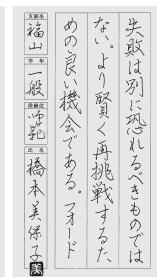 失敗は別に恐れるべきものでは
ない。より賢く再挑戦するた
めの良い機会である。フォード
支部名
福山
学年
一般
段級位
師範
氏名
橋本美保子